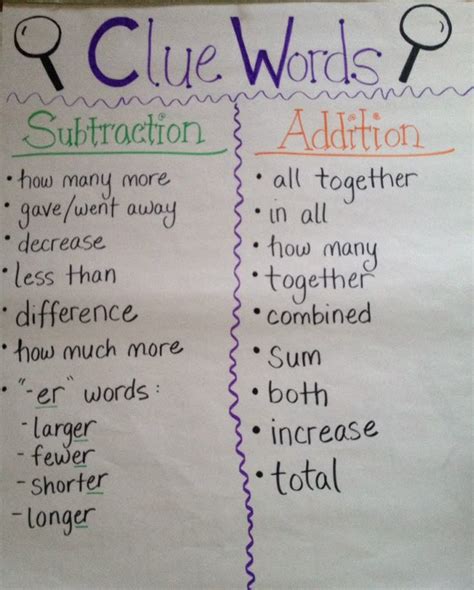 Clue Words
Subtraction
• how many more
• gave/went away
• decrease
• less than
• difference
• how much more
• "-er" words:
- larger
- fewer
- shorter
- longer
Addition
• all together
• in all
• how many
• together
• combined
• Sum
• both
• increase
• total